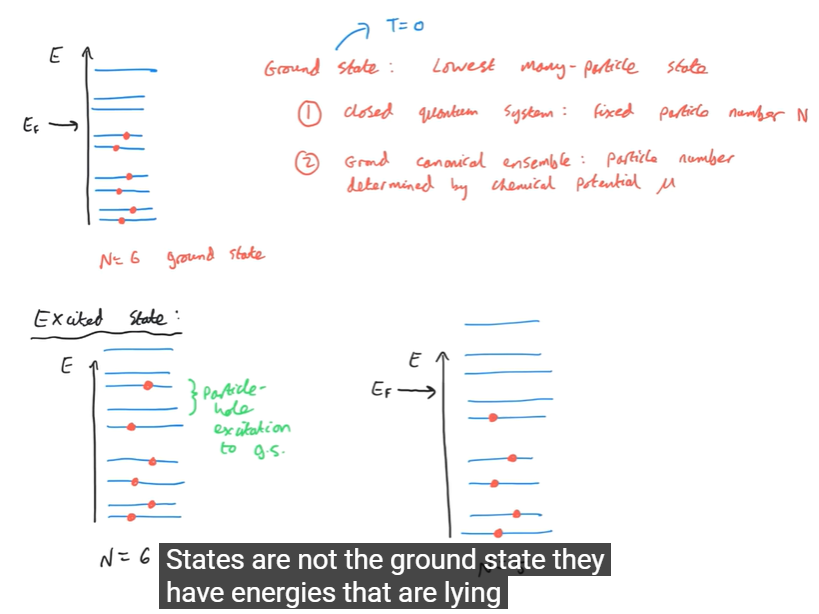 T=0
E
Ground state : Lowest many-particle state
① closed quantum system : fixed particle number N
E_F
② Grand canonical ensemble : particle number
determined by chemical potential μ
N=6 ground state
Excited state :
E
} Particle-
hole
excitation
to g.s.
E
E_F
N=6
States are not the ground state they
have energies that are lying